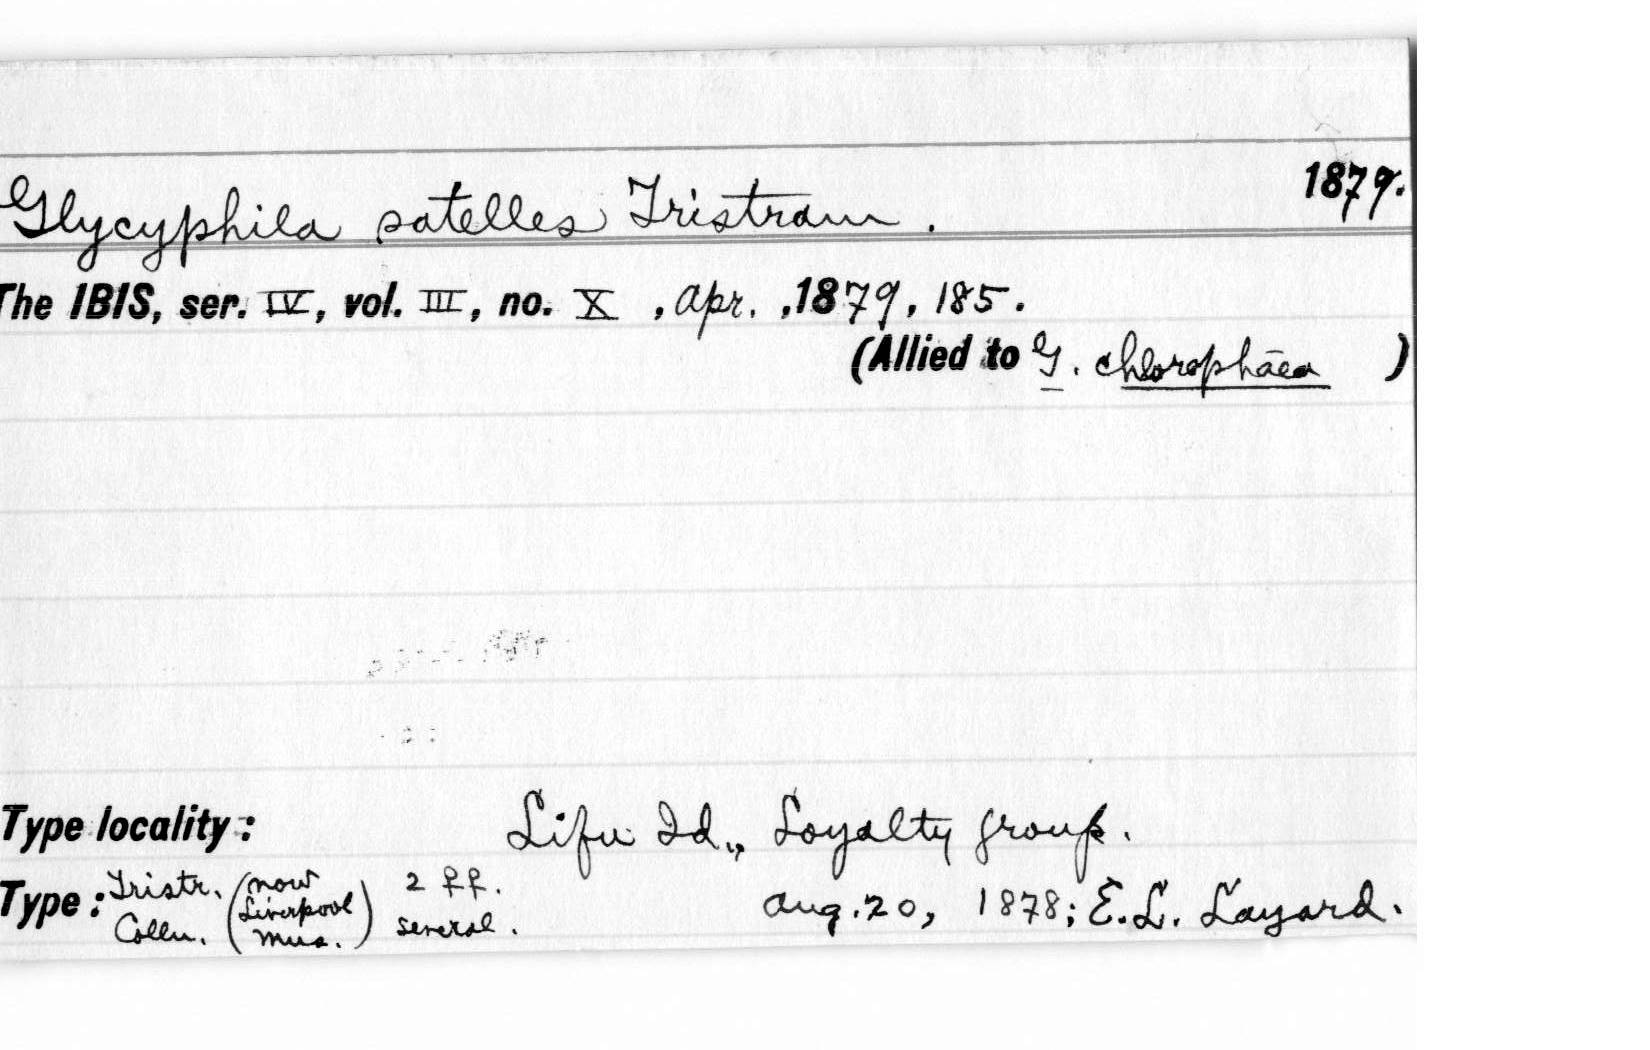 1879.
Glycyphila satelles Tristram.
The IBIS, ser. IV, vol. III, no. X , Apr. , 1879, 185.
(Allied to G. chlorophāea )
Type locality: Lifu Id., Loyalty group.
Type: Tristr. Colln. (now Liverpool Mus.) 2 ff. several. Aug. 20, 1878; E. L. Layard.